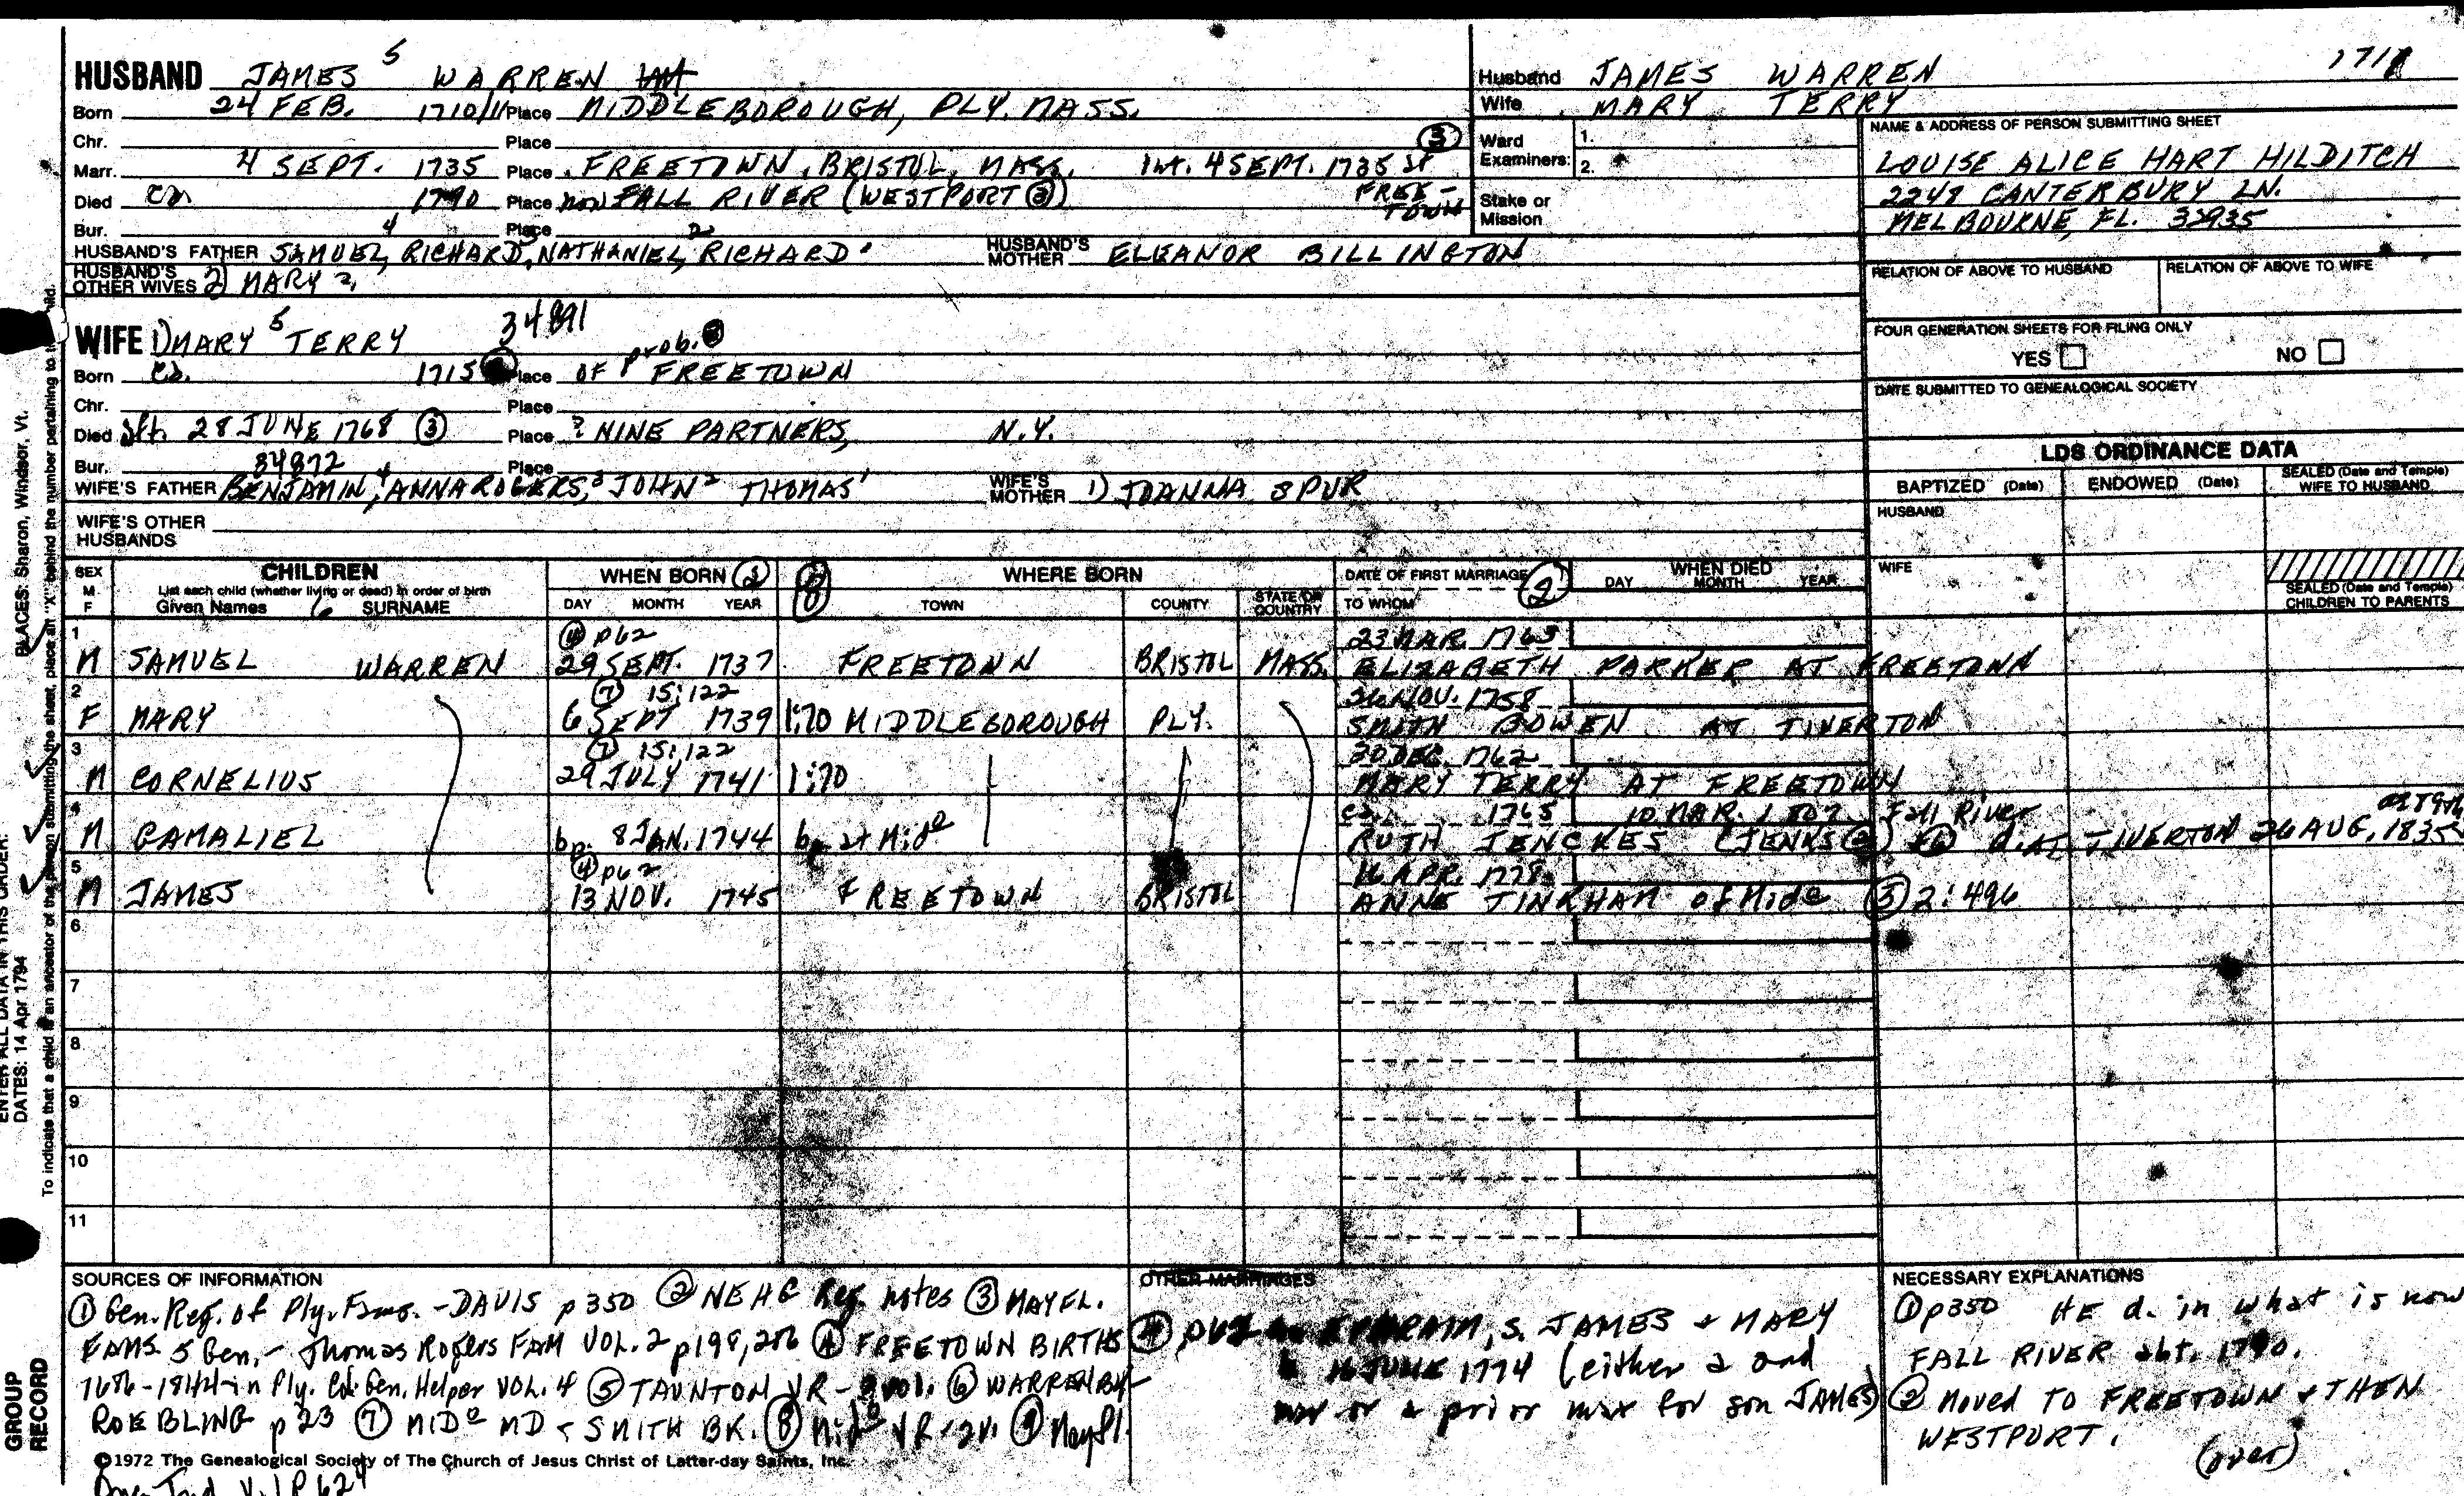 HUSBAND JAMES 5 WARREN
Born 24 FEB. 1710/11 Place MIDDLEBOROUGH, PLY. MASS.
Chr. Place
Marr. 4 SEPT. 1735 Place FREETOWN, BRISTOL, MASS. Int. 4 SEPT. 1735 at FREE-TOWN ③
Died ca 1790 Place now FALL RIVER (WESTPORT ②)
Bur. Place
HUSBAND'S FATHER SAMUEL 4, RICHARD 3, NATHANIEL 2, RICHARD 1 HUSBAND'S MOTHER ELEANOR BILLINGTON
HUSBAND'S OTHER WIVES 2) MARY ?
Husband JAMES WARREN
Wife MARY TERRY
Ward Examiners: 1. 2.
Stake or Mission
NAME & ADDRESS OF PERSON SUBMITTING SHEET
LOUISE ALICE HART HILDITCH
2248 CANTERBURY LN.
MELBOURNE, FL. 32935
RELATION OF ABOVE TO HUSBAND RELATION OF ABOVE TO WIFE
FOUR GENERATION SHEETS FOR FILING ONLY
YES NO
DATE SUBMITTED TO GENEALOGICAL SOCIETY
WIFE 1) MARY 5 TERRY 34891
Born ca. 1715 Place OF prob. FREETOWN
Chr. Place
Died aft. 28 JUNE 1768 ③ Place ? NINE PARTNERS, N.Y.
Bur. 34872 Place
WIFE'S FATHER BENJAMIN 4, ANNA ROGERS, 3 JOHN 2 THOMAS 1 WIFE'S MOTHER 1) JOANNA SPUR
WIFE'S OTHER HUSBANDS
LDS ORDINANCE DATA
BAPTIZED (Date) ENDOWED (Date) SEALED (Date and Temple) WIFE TO HUSBAND
HUSBAND
WIFE
SEALED (Date and Temple) CHILDREN TO PARENTS
SEX M F CHILDREN List each child (whether living or dead) in order of birth Given Names 6 SURNAME
WHEN BORN ② DAY MONTH YEAR
⑧ WHERE BORN TOWN COUNTY STATE OR COUNTRY
DATE OF FIRST MARRIAGE ② TO WHOM
WHEN DIED DAY MONTH YEAR
④ p62 23 MAR 1763
1 M SAMUEL WARREN 29 SEPT. 1737 FREETOWN BRISTOL MASS. ELIZABETH PARKER AT FREETOWN
⑦ 15:122 NOV. 1758
2 F MARY 6 SEPT 1739 1:70 MIDDLEBOROUGH PLY. SMITH BOWEN AT TIVERTON
⑦ 15:122 20 DEC. 1762
3 M CORNELIUS 29 JULY 1741 1:70 MARY TERRY AT FREETOWN
ca. 1765 10 MAR. 1807 Fall River
4 M GAMALIEL bp. 8 JAN. 1744 bp at Mide RUTH JENCKES (JENKS ②) ⑥ d. AT TIVERTON 26 AUG, 1835
④ p62 16 APR. 1778
5 M JAMES 13 NOV. 1745 FREETOWN BRISTOL ANNE TINKHAM of Mide ⑤ 2:496
6
7
8
9
10
11
SOURCES OF INFORMATION
① Gen. Reg. of Ply. Fams. - DAVIS p 350 ② NEHG Reg. notes ③ MAYFL.
FAMS 5 Gen. - Thomas Rogers FAM VOL. 2 p198, 206 ④ FREETOWN BIRTHS
1686-1844 in Ply. Co. Gen. Helper VOL. 4 ⑤ TAUNTON VR - vol. ⑥ WARREN BY
ROEBLING p 23 ⑦ MIDe MD & SMITH BK. ⑧ Mide VR ⑨ Mayfl.
©1972 The Genealogical Society of The Church of Jesus Christ of Latter-day Saints, Inc.
OTHER MARRIAGES
④ p62 EPHRAIM, S. JAMES + MARY
b 16 JUNE 1774 (either a 2nd
mar or a prior mar for son JAMES)
NECESSARY EXPLANATIONS
① p350 HE d. in what is now
FALL RIVER abt. 1790.
② Moved TO FREETOWN & THEN
WESTPORT.
(over)
PLACES: Sharon, Windsor, Vt.
ENTER ALL DATA IN THIS ORDER:
DATES: 14 Apr 1794
To indicate that a child is an ancestor of the person submitting the sheet, place an "X" behind the number pertaining to that child.
GROUP RECORD